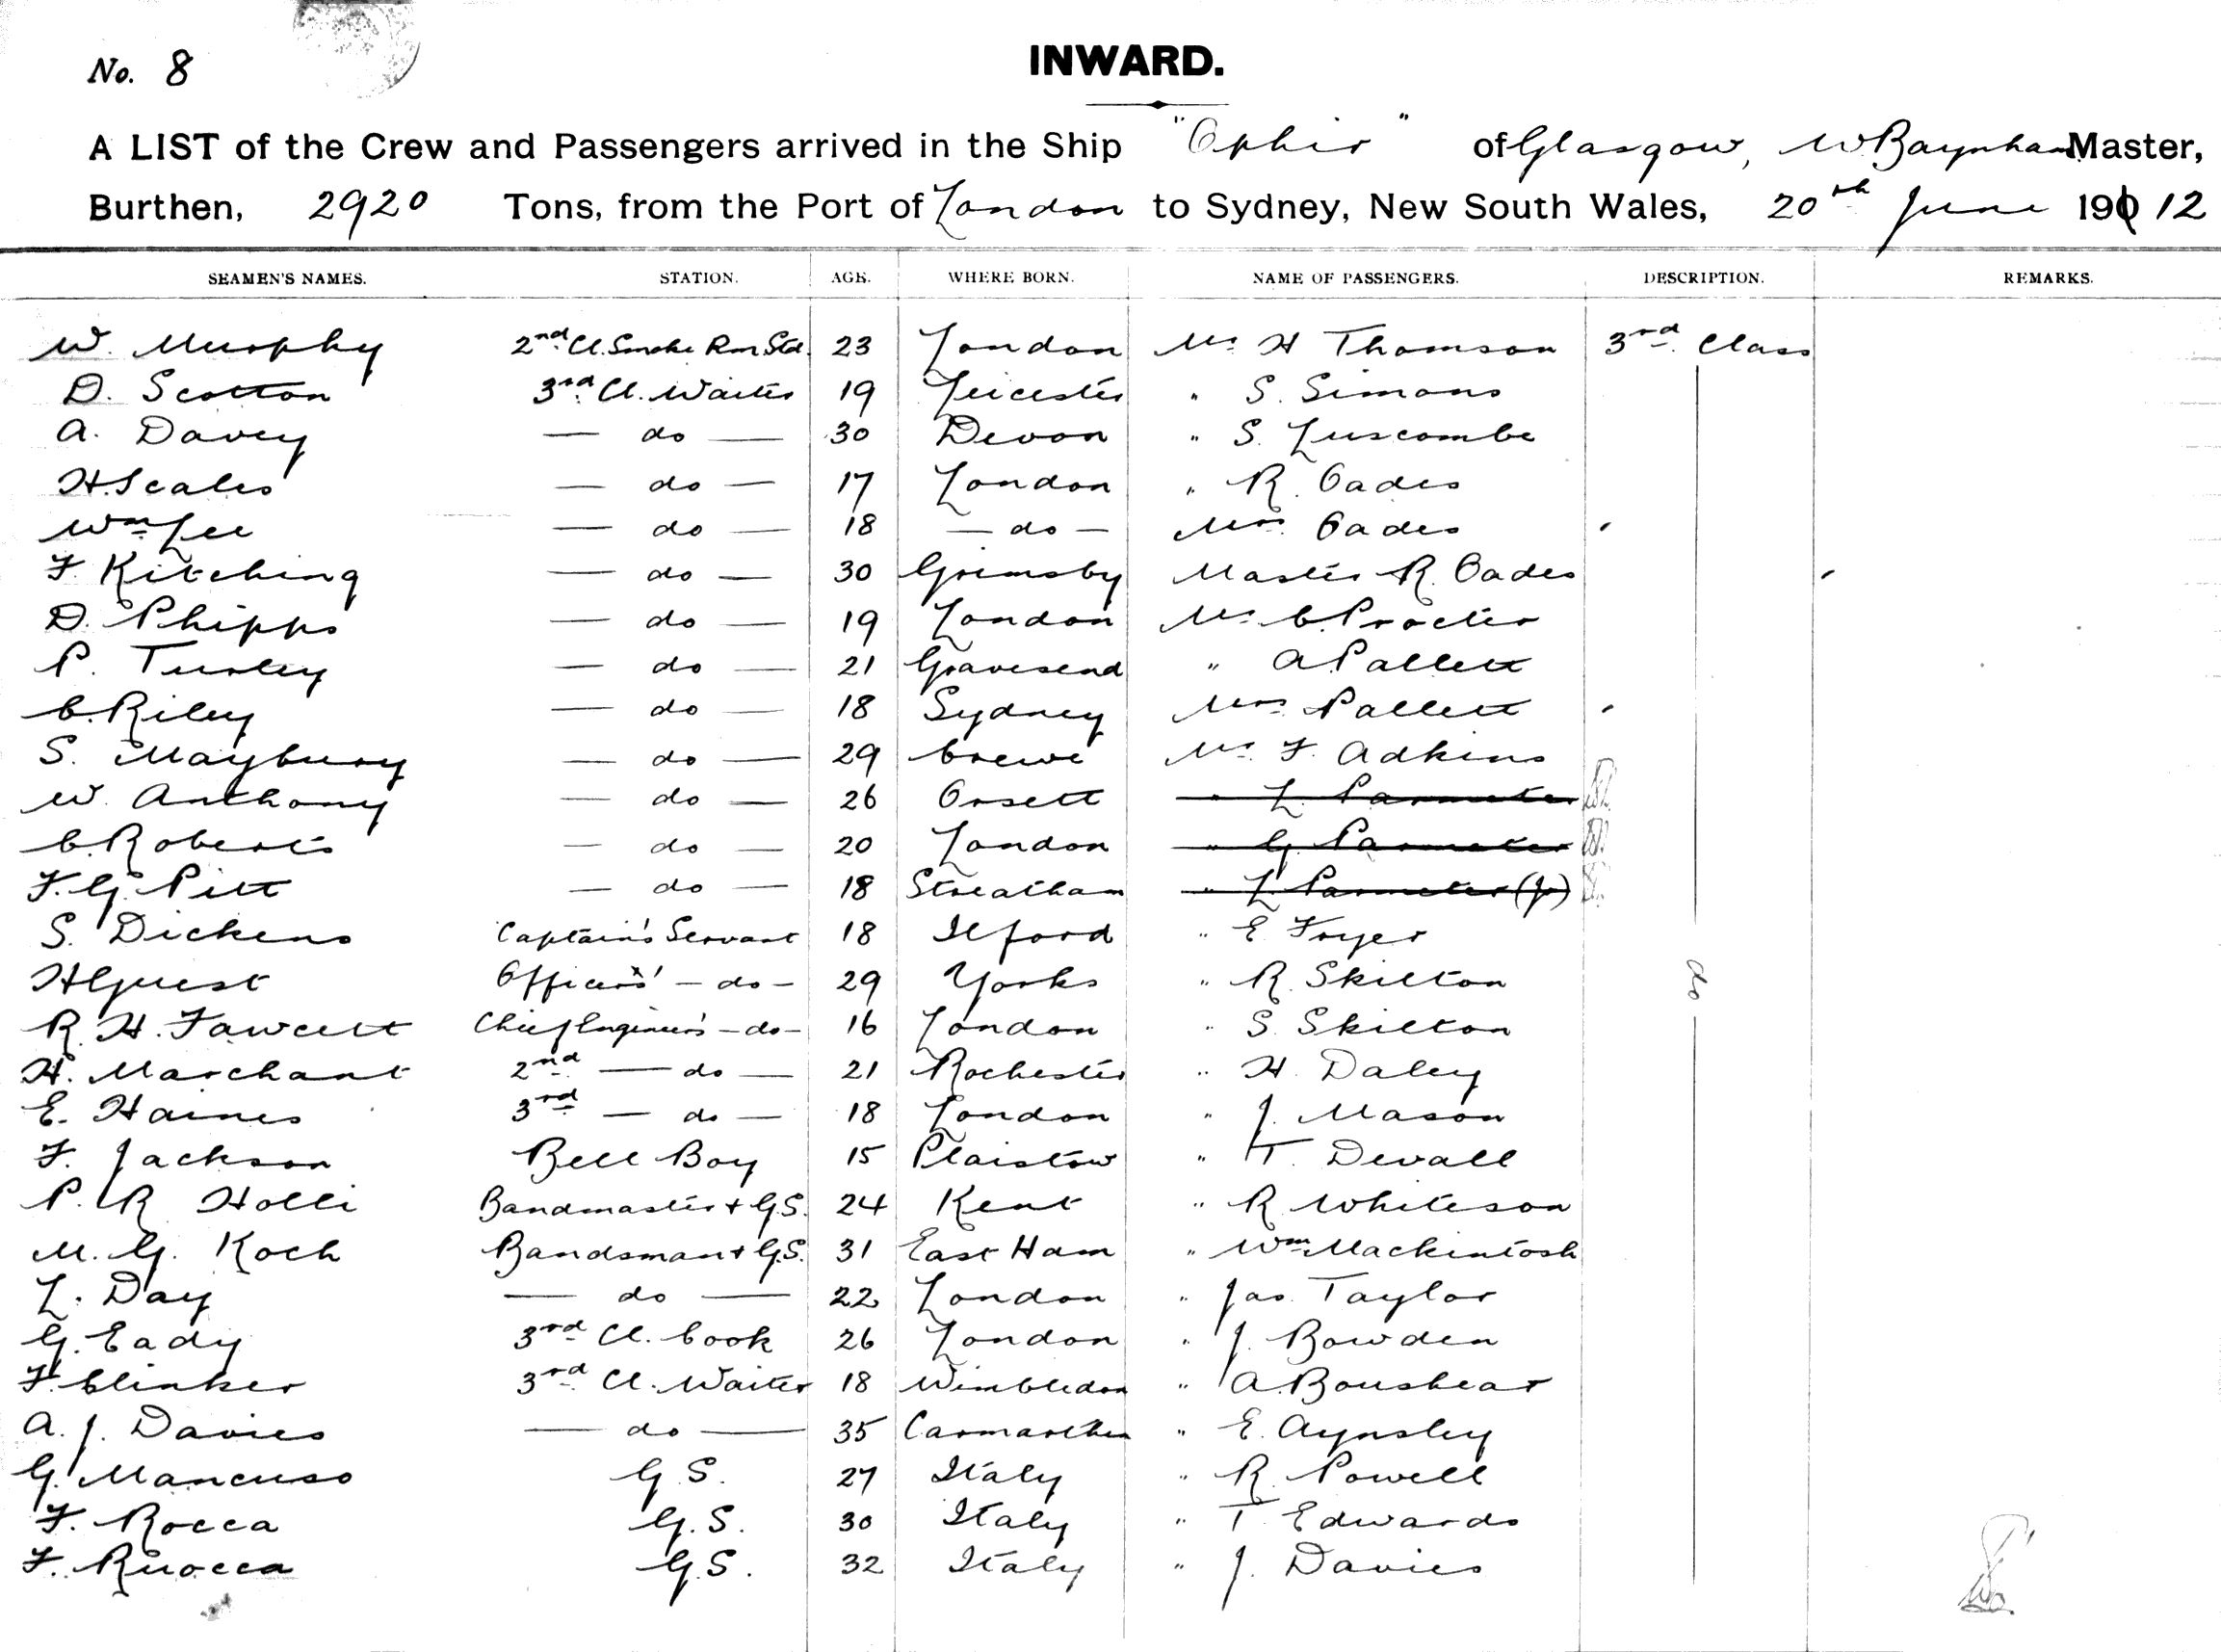 No. 8
INWARD.
A LIST of the Crew and Passengers arrived in the Ship "Ophir" of Glasgow, W Baynham Master,
Burthen, 2920 Tons, from the Port of London to Sydney, New South Wales, 20th June 190 12
SEAMEN'S NAMES. STATION. AGE. WHERE BORN. NAME OF PASSENGERS. DESCRIPTION. REMARKS.
W. Murphy 2nd Cl. Smoke Rm Std. 23 London Mr H Thomson 3rd Class
D. Scotton 3rd Cl. Waiter 19 Leicester " S. Simons
A. Davey — do — 30 Devon " S. Luscombe
H. Scales — do — 17 London " R. Oades
Wm Lee — do — 18 — do — Mrs Oades
F. Kitching — do — 30 Grimsby Master R. Oades
D. Phipps — do — 19 London Mr C. Procter
P. Turley — do — 21 Gravesend " A Pallett
C. Riley — do — 18 Sydney Mrs Pallett
S. Maybury — do — 29 Crewe Mr F. Adkins
W. Anthony — do — 26 Orsett " L Parmeter
C. Roberts — do — 20 London " G. Parmeter
F. G. Pitt — do — 18 Streatham " L Parmeter (Jr)
S. Dickens Captain's Servant 18 Ilford " E Fryer
H Guest Officers' — do — 29 Yorks " R. Skilton
R. H. Fawcett Chief Engineer's — do — 16 London " S. Skilton do
H. Marchant 2nd — do — 21 Rochester " H. Daley
E. Haines 3rd — do — 18 London " J. Mason
F. Jackson Bell Boy 15 Plaistow " T. Devall
P. R Holli Bandmaster + G.S. 24 Kent " R Whiteson
M. G. Koch Bandsman + G.S. 31 East Ham " Wm Mackintosh
L. Day — do — 22 London " Jas. Taylor
G. Eady 3rd Cl. Cook 26 London " J. Bowden
F. Clinker 3rd Cl. Waiter 18 Wimbledon " A. Boushear
A. J. Davies — do — 35 Carmarthen " E. Aynsley
G. Mancuso G.S. 27 Italy " R. Powell
F. Rocca G.S. 30 Italy " T Edwards
F. Ruocca G.S. 32 Italy " J. Davies